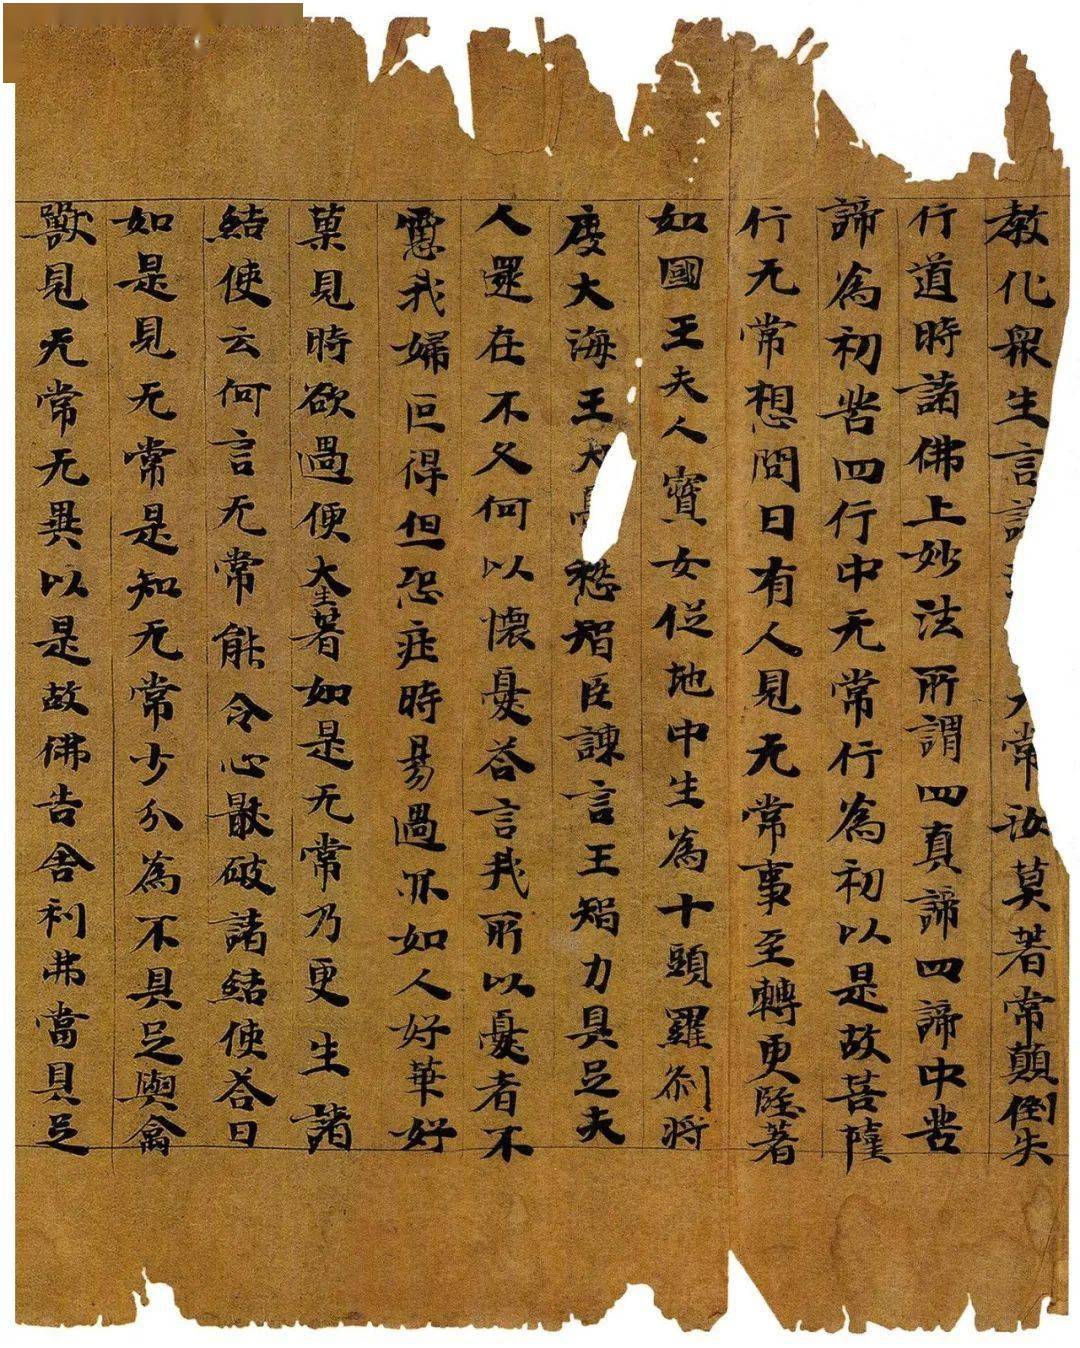 教化衆生言常汝莫著常顛倒失
行道時諸佛上妙法所謂四真諦四諦中苦
諦為初苦四行中无常行為初以是故菩薩
行无常想問曰有人見无常事至轉更堅著
如國王夫人寶女從地中生為十頭羅剎將
度大海王大愁智臣諫言王智力具足夫
人還在不久何以懷憂荅言我所以憂者不
慮我婦叵得但恐壯時易過亦如人好華好
菓見時欲過便大生著如是无常乃更生諸
結使云何言无常能令心猒破諸結使荅曰
如是見无常是知无常少分為不具足與禽
獸見无常无異以是故佛告舍利弗當具足